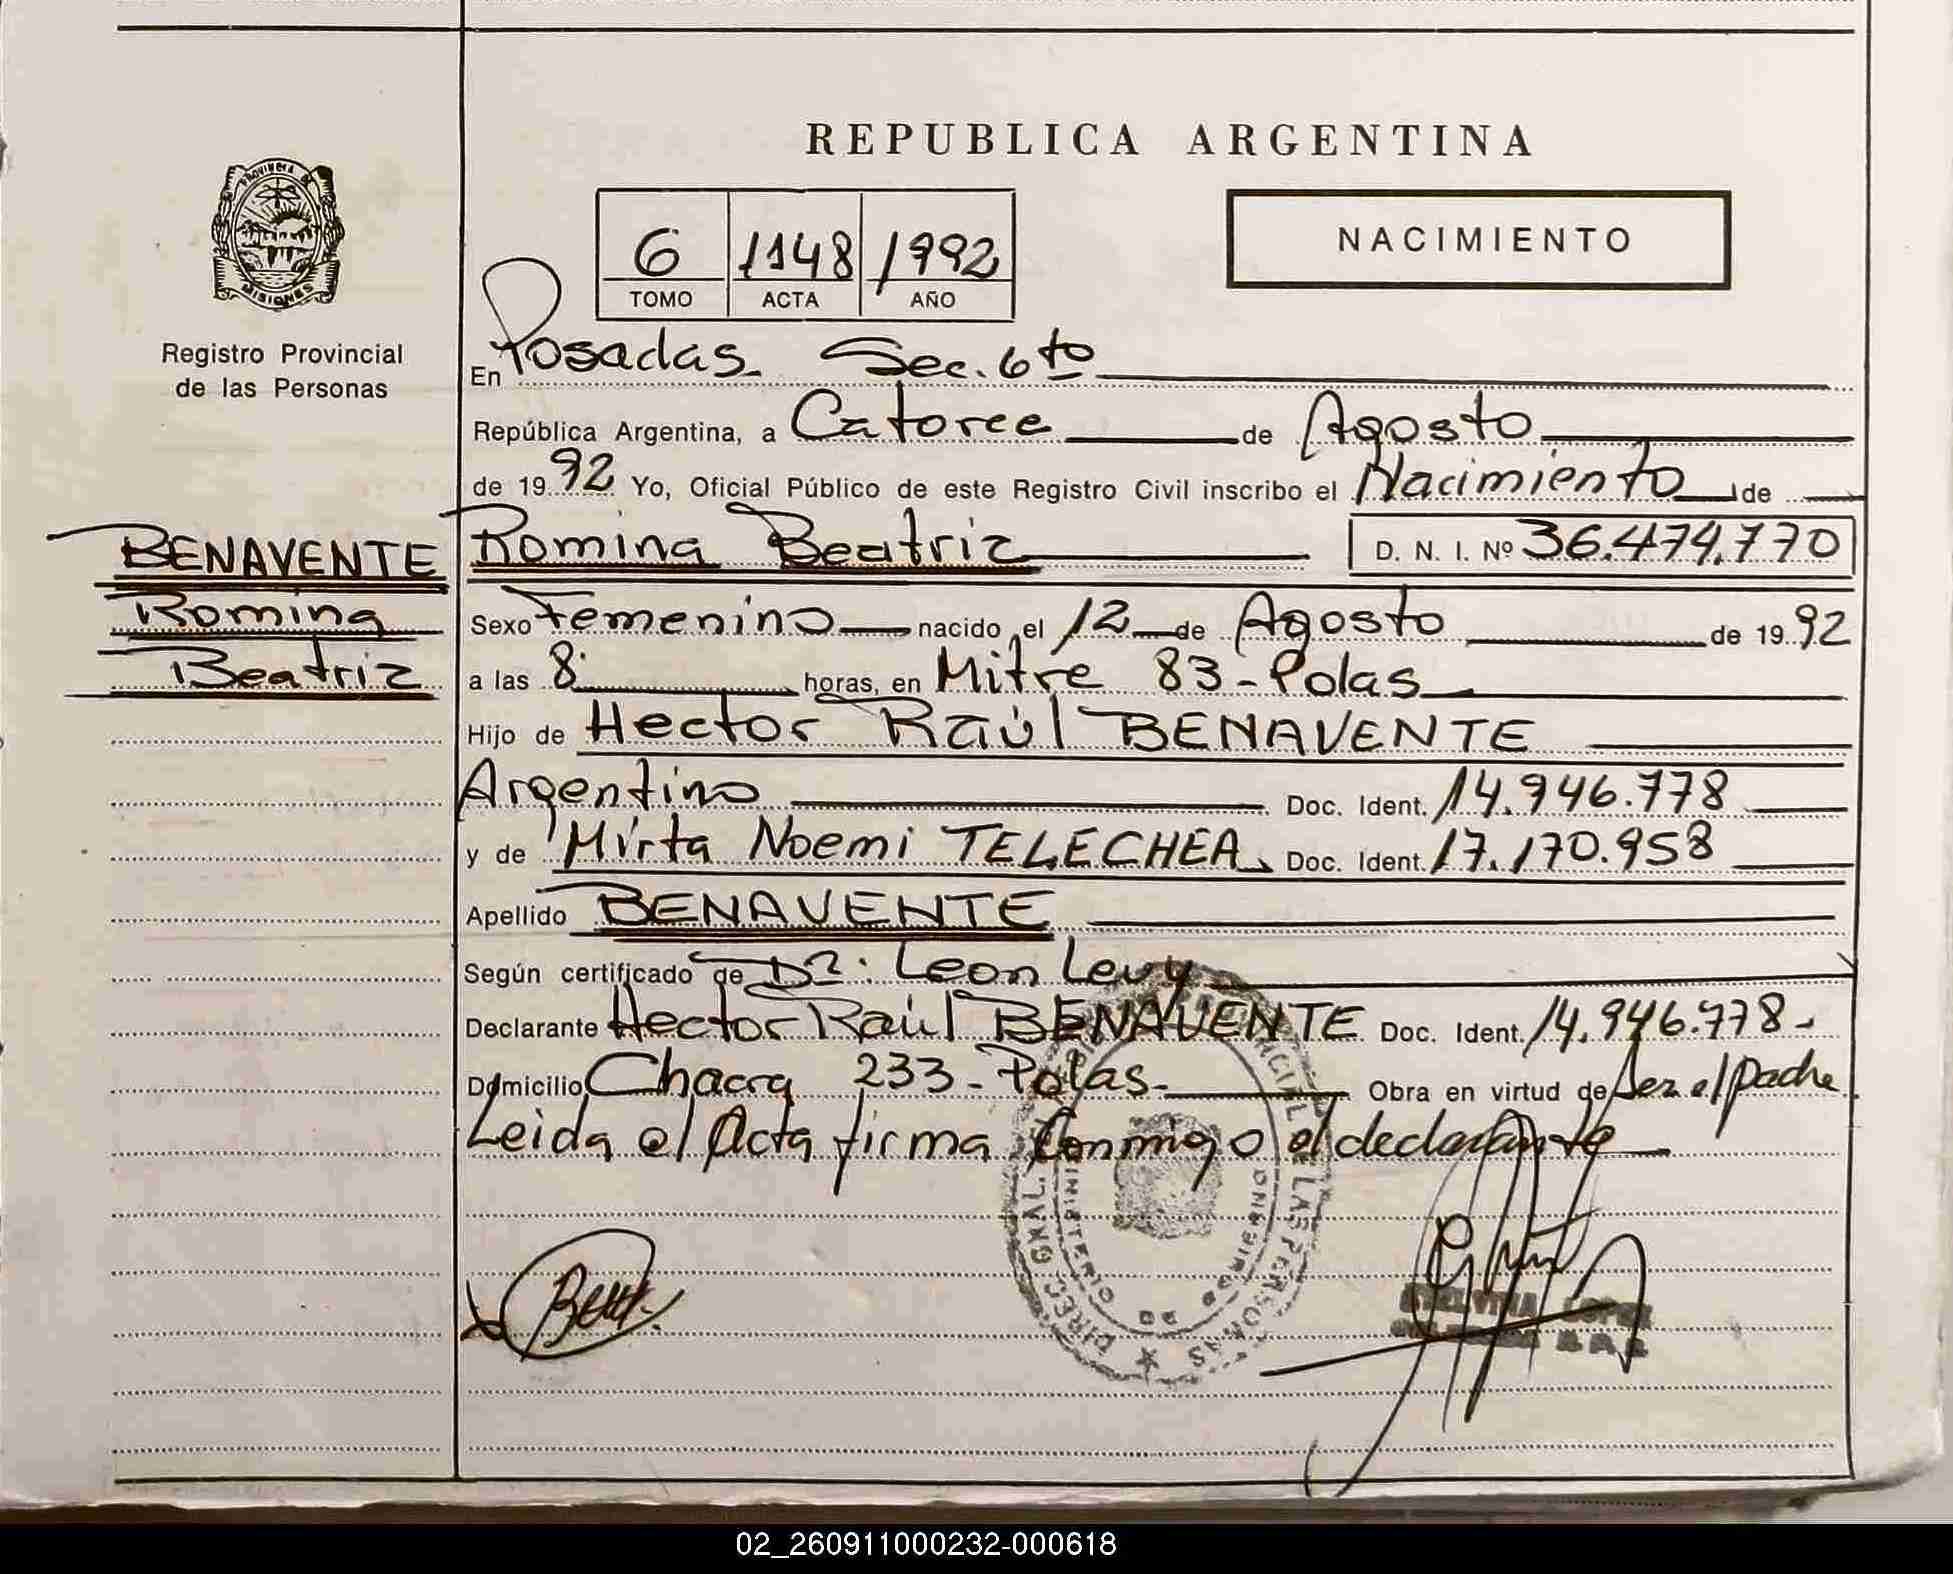 REPUBLICA ARGENTINA
PROVINCIA DE
MISIONES
Registro Provincial
de las Personas
6 1148 1992
TOMO ACTA AÑO
NACIMIENTO
En Posadas Sec. 6to
República Argentina, a Catorce de Agosto
de 19 92 Yo, Oficial Público de este Registro Civil inscribo el Nacimiento de
BENAVENTE Romina Beatriz D. N. I. Nº 36.474.770
Romina Sexo Femenino nacido el 12 de Agosto de 19 92
Beatriz a las 8 horas, en Mitre 83 - Pdas
Hijo de Hector Raúl BENAVENTE
Argentino Doc. Ident. 14.946.778
y de Mirta Noemi TELECHEA Doc. Ident. 17.170.958
Apellido BENAVENTE
Según certificado de Dr. Leon Levy
Declarante Hector Raúl BENAVENTE Doc. Ident. 14.946.778-
Domicilio Chacra 233 - Pdas - Obra en virtud de Ser el padre
Leida el Acta firma Conmigo el declarante
DIREC. GRAL. PROVINCIAL DE LAS PERSONAS
MINISTERIO DE GOBIERNO
02_260911000232-000618